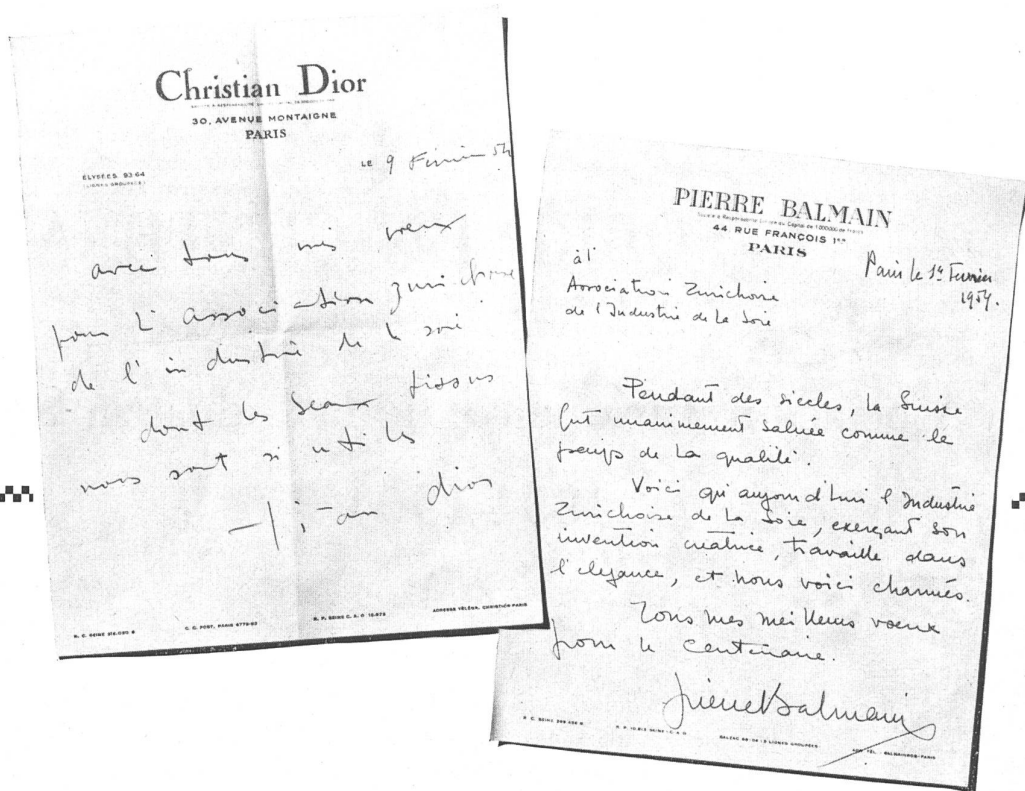 Christian Dior
30, AVENUE MONTAIGNE
PARIS
ÉLYSÉES 93-64
(LIGNES GROUPÉES)
LE 9 Février 54
avec tous mes vœux
pour l'association zurichoise
de l'industrie de la soie
dont les beaux tissus
nous sont si utiles
dior
C. C. POST. PARIS
ADRESSE TÉLÉGR. CHRISTIOR-PARIS
PIERRE BALMAIN
Société à Responsabilité Limitée au Capital de Francs
44 RUE FRANÇOIS 1ER
PARIS
Paris le 1er Février
1954.
à l'
Association Zurichoise
de l'Industrie de la Soie
Pendant des siècles, la Suisse
fut unanimement saluée comme le
pays de la qualité.
Voici qu'aujourd'hui l'Industrie
Zurichoise de la Soie, exerçant son
invention créatrice, travaille dans
l'élégance, et nous voici charmés.
Tous mes meilleurs vœux
pour le Centenaire.
Pierre Balmain
LIGNES GROUPÉES